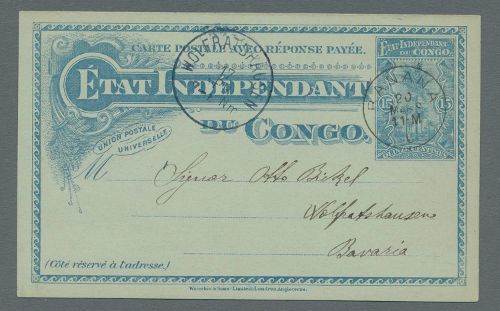 CARTE POSTALE AVEC RÉPONSE PAYÉE.
ÉTAT INDÉPENDANT
DU CONGO.
UNION POSTALE
UNIVERSELLE
ÉTAT INDÉPENDANT
DU CONGO.
15 15
QUINZE CENTIMES
WOLFRATSHAUSEN
BANANA
M
Signor Otto Bickel
Wolfratshausen
Bavaria
(Côté réservé à l'adresse.)
Waterlow & Sons Limited, Londres, Angleterre.